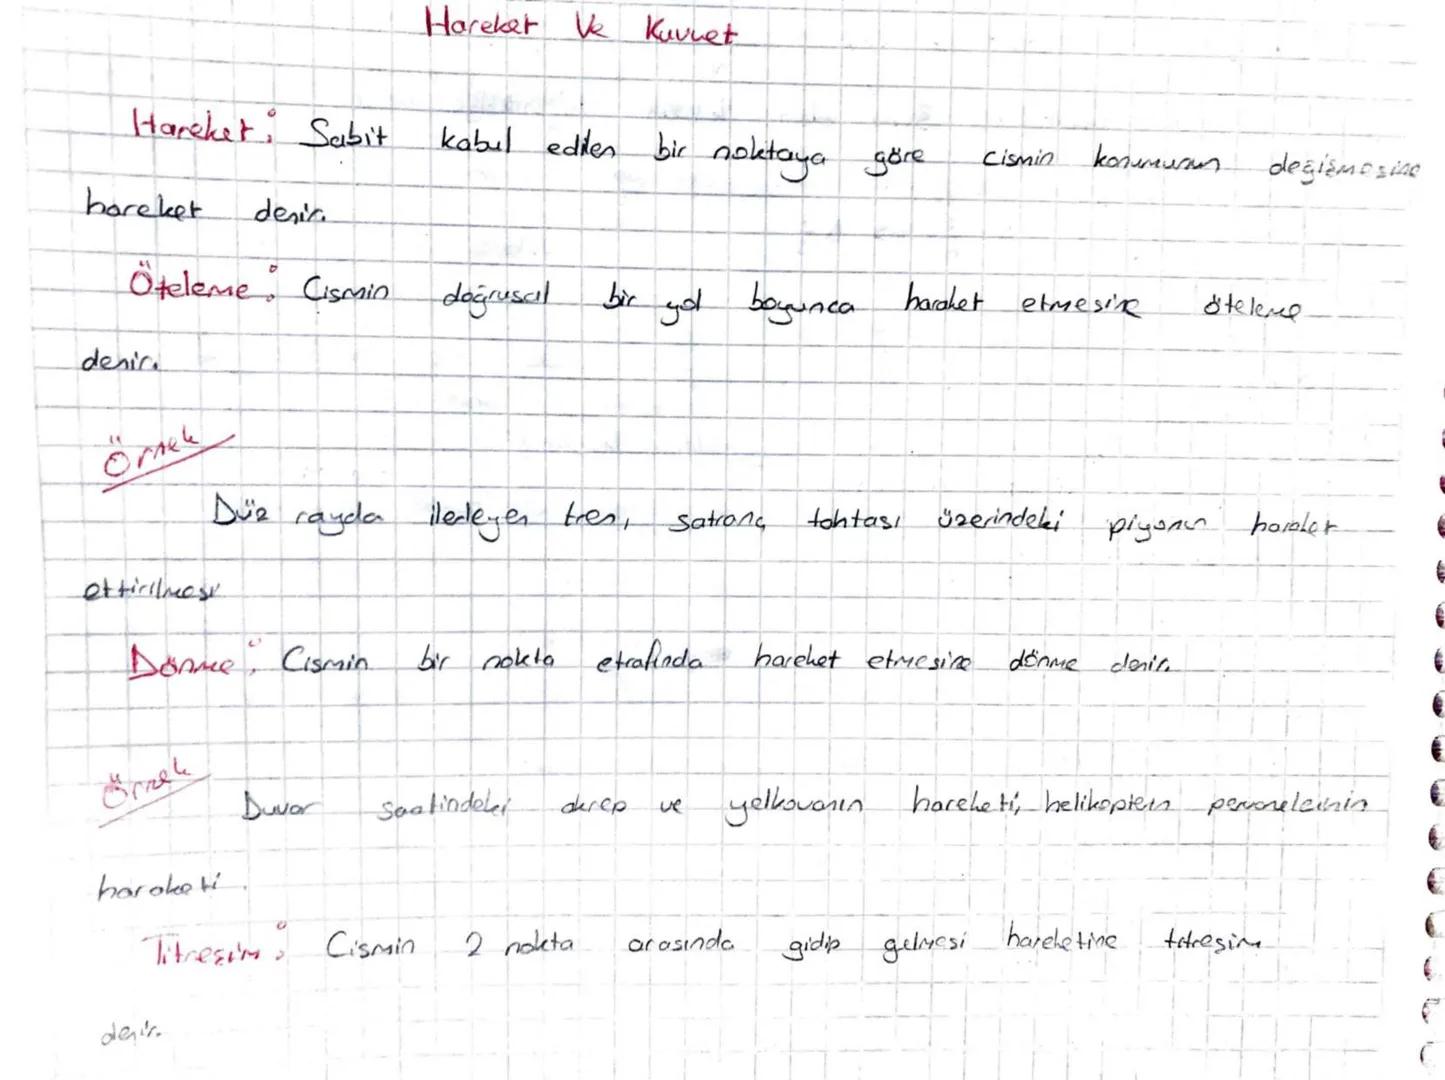 Hareket Ve Kuvvet
Hareket: Sabit kabul edilen bir noktaya göre cismin konumunun değişmesine
hareket denir.
Öteleme: Cismin doğrusal bir yol boyunca hareket etmesine öteleme
denir.
Örnek
Düz rayda ilerleyen tren, satranç tahtası üzerindeki piyonun hareket
ettirilmesi
Dönme: Cismin bir nokta etrafında hareket etmesine dönme denir.
Örnek
Duvar saatindeki akrep ve yelkovanın hareketi, helikopterin pervanelerinin
hareketi.
Titreşim: Cismin 2 nokta arasında gidip gelmesi hareketine titreşim
denir.